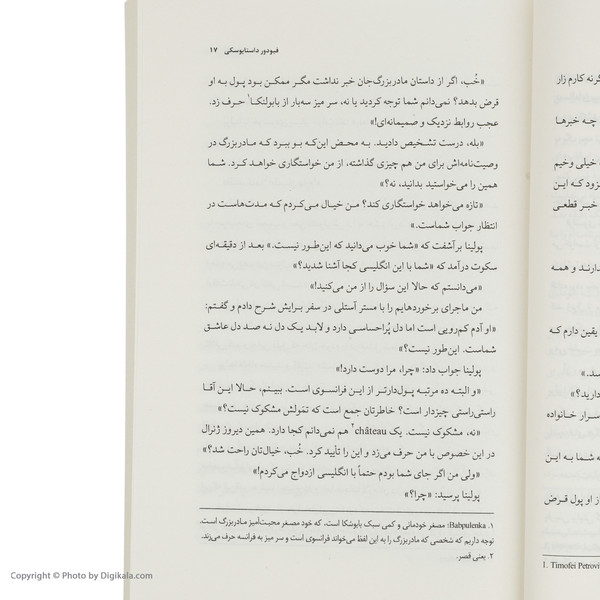 فیودور داستایوسکی ۱۷
«خُب، اگر از داستان مادربزرگ‌جان خبر نداشت مگر ممکن بود پول به او
قرض بدهد؟ نمی‌دانم شما توجه کردید یا نه، سر میز سه‌بار از بابولنکا۱ حرف زد.
عجب روابط نزدیک و صمیمانه‌ای!»
«بله، درست تشخیص دادید. به محض این‌که بو ببرد که مادربزرگ در
وصیت‌نامه‌اش برای من هم چیزی گذاشته، از من خواستگاری خواهد کرد. شما
همین را می‌خواستید بدانید، نه؟»
«تازه می‌خواهد خواستگاری کند؟ من خیال می‌کردم که مدت‌هاست در
انتظار جواب شماست.»
پولینا برآشفت که «شما خوب می‌دانید که این‌طور نیست.» بعد از دقیقه‌ای
سکوت درآمد که «شما با این انگلیسی کجا آشنا شدید؟»
«می‌دانستم که حالا این سؤال را از من می‌کنید!»
من ماجرای برخوردهایم را با مستر آستلی در سفر برایش شرح دادم و گفتم:
«او آدم کم‌رویی است اما دل پُراحساسی دارد و لابد یک دل نه صد دل عاشق
شماست. این‌طور نیست؟»
پولینا جواب داد: «چرا، مرا دوست دارد!»
«و البته ده مرتبه پول‌دارتر از این فرانسوی است. ببینم، حالا این آقا
راستی‌راستی چیزدار است؟ خاطرتان جمع است که تمولش مشکوک نیست؟»
«نه، مشکوک نیست. یک château۲ هم نمی‌دانم کجا دارد. همین دیروز ژنرال
در این خصوص با من حرف می‌زد و این را تأیید کرد. خُب، خیال‌تان راحت شد؟»
«ولی من اگر جای شما بودم حتماً با انگلیسی ازدواج می‌کردم!»
پولینا پرسید: «چرا؟»
۱. Babpulenka: مصغر خودمانی و کمی سبک بابوشکا است، که خود مصغر محبت‌آمیز مادربزرگ است.
توجه داریم که شخصی که مادربزرگ را به این لفظ می‌خواند فرانسوی است و سر میز به فرانسه حرف می‌زند.
۲. یعنی قصر.
گرنه کارم زار
چه خبرها
خیلی وخیم
زود که این
خبر قطعی
دارند و همه
یقین دارم که
سد.»
دارید؟»
سرار خانواده
که شما به این
از او پول قرض
1. Timofei Petrovi
Copyright © Photo by Digikala.com